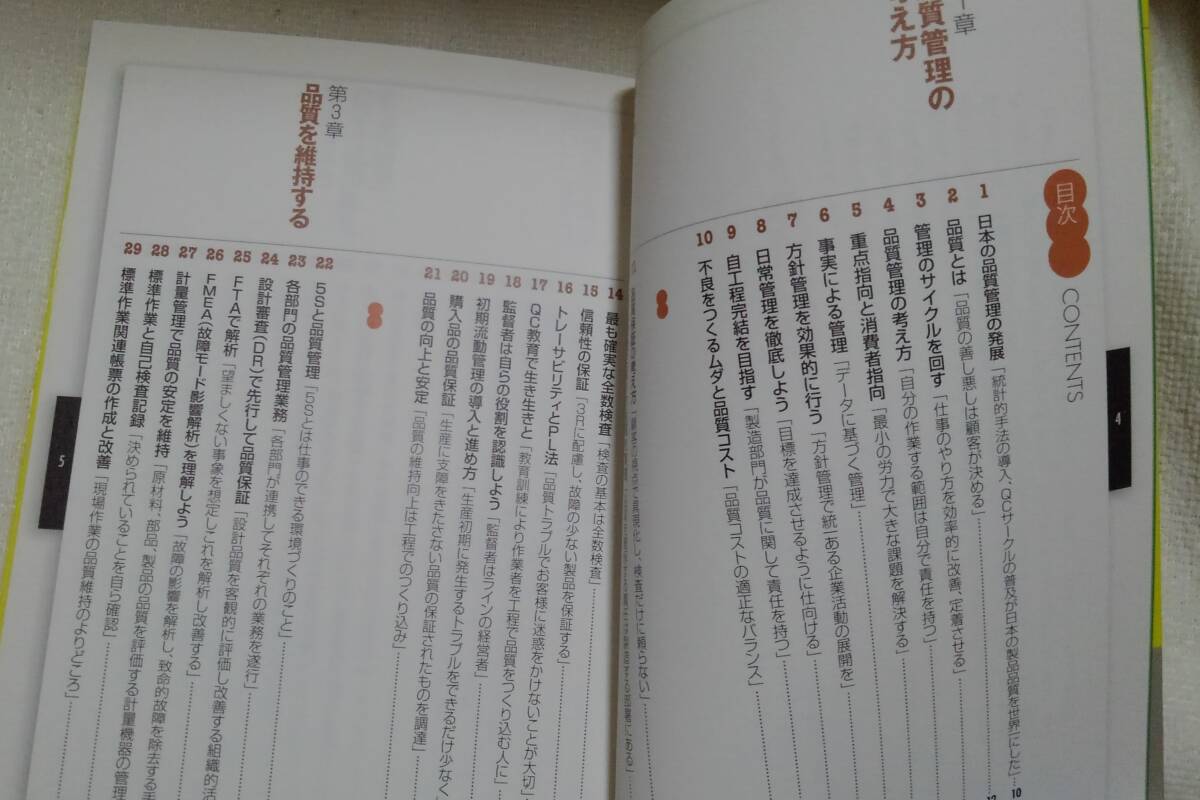 目次
CONTENTS
章
質管理の
え方
1 日本の品質管理の発展「統計的手法の導入、QCサークルの普及が日本の製品品質を世界一にした」 10
2 品質とは「品質の善し悪しは顧客が決める」 12
3 管理のサイクルを回す「仕事のやり方を効率的に改善、定着させる」
4 品質管理の考え方「自分の作業する範囲は自分で責任を持つ」
5 重点指向と消費者指向「最小の労力で大きな課題を解決する」
6 事実による管理「データに基づく管理」
7 方針管理を効果的に行う「方針管理で統一ある企業活動の展開を」
8 日常管理を徹底しよう「目標を達成させるように仕向ける」
9 自工程完結を目指す「製造部門が品質に関して責任を持つ」
10 不良をつくるムダと品質コスト「品質コストの適正なバランス」
4
14 最も確実な全数検査「検査の基本は全数検査」
15 信頼性の保証「3Rに配慮し、故障の少ない製品を保証する」
16 トレーサビリティとPL法「品質トラブルでお客様に迷惑をかけないことが大切」
17 QC教育で生き生きと「教育訓練により作業者を工程で品質をつくり込む人に」
18 監督者は自らの役割を認識しよう「監督者はラインの経営者」
19 初期流動管理の導入と進め方「生産初期に発生するトラブルをできるだけ少なく
20 購入品の品質保証「生産に支障をきたさない品質の保証されたものを調達」
21 品質の向上と安定「品質の維持向上は工程でのつくり込み」
第3章
品質を維持する
22 5Sと品質管理「5Sとは仕事のできる環境づくりのこと」
23 各部門の品質管理業務「各部門が連携してそれぞれの業務を遂行」
24 設計審査(DR)で先行して品質保証「設計品質を客観的に評価し改善する組織的活
25 FTAで解析「望ましくない事象を想定しこれを解析し改善する」
26 FMEA(故障モード影響解析)を理解しよう「故障の影響を解析し、致命的故障を除去する手
27 計量管理で品質の安定を維持「原材料、部品、製品の品質を評価する計量機器の管理
28 標準作業と自己検査記録「決められていることを自ら確認」
29 標準作業関連帳票の作成と改善「現場作業の品質維持のよりどころ」
5